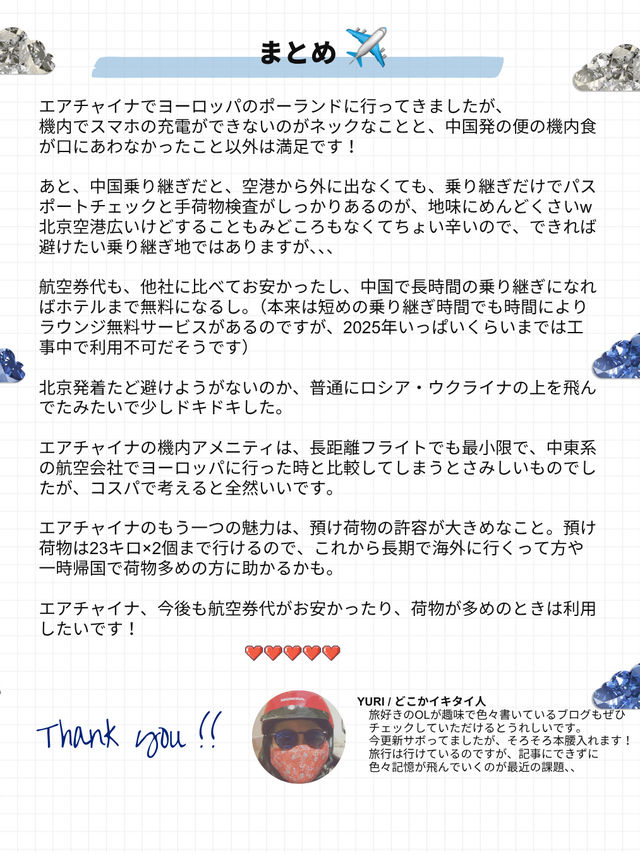 まとめ
エアチャイナでヨーロッパのポーランドに行ってきましたが、
機内でスマホの充電ができないのがネックなことと、中国発の便の機内食
が口にあわなかったこと以外は満足です！
あと、中国乗り継ぎだと、空港から外に出なくても、乗り継ぎだけでパス
ポートチェックと手荷物検査がしっかりあるのが、地味にめんどくさいw
北京空港広いけどすることもみどころもなくてちょい辛いので、できれば
避けたい乗り継ぎ地ではありますが、、、
航空券代も、他社に比べてお安かったし、中国で長時間の乗り継ぎになれ
ばホテルまで無料になるし。（本来は短めの乗り継ぎ時間でも時間により
ラウンジ無料サービスがあるのですが、2025年いっぱいくらいまでは工
事中で利用不可だそうです）
北京発着たど避けようがないのか、普通にロシア・ウクライナの上を飛ん
でたみたいで少しドキドキした。
エアチャイナの機内アメニティは、長距離フライトでも最小限で、中東系
の航空会社でヨーロッパに行った時と比較してしまうとさみしいものでし
たが、コスパで考えると全然いいです。
エアチャイナのもう一つの魅力は、預け荷物の許容が大きめなこと。預け
荷物は23キロ×2個まで行けるので、これから長期で海外に行くって方や
一時帰国で荷物多めの方に助かるかも。
エアチャイナ、今後も航空券代がお安かったり、荷物が多めのときは利用
したいです！
Thank you !!
YURI / どこかイキタイ人
旅好きのOLが趣味で色々書いているブログもぜひ
チェックしていただけるとうれしいです。
今更新サボってましたが、そろそろ本腰入れます！
旅行は行けているのですが、記事にできずに
色々記憶が飛んでいくのが最近の課題、、